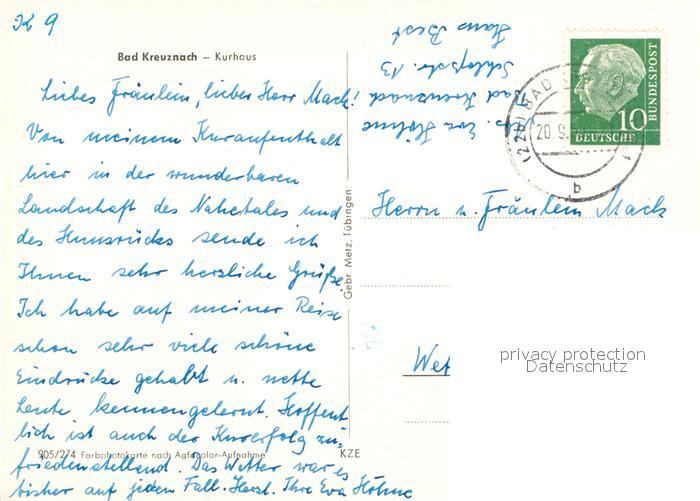 K 9
Bad Kreuznach – Kurhaus
Liebes Fräulein, lieber Herr Mack!
Von meinem Kuraufenthalt
hier in der wunderbaren
Landschaft des Nahetales und
des Hunsrücks sende ich
Ihnen sehr herzliche Grüße.
Ich habe auf meiner Reise
schon sehr viele schöne
Eindrücke gehabt u. nette
Leute kennengelernt. Hoffent
lich ist auch der Kurerfolg zu-
friedenstellend. Das Wetter war es
bisher auf jeden Fall. Herzl. Ihre Eva Höhne
905/274 Farbphotokarte nach Agfacolor-Aufnahme
KZE
Gebr. Metz, Tübingen
Eva Höhne
Bad Kreuznach
Schloßstr. 13
Haus Best
(22b) BAD
20.9.
b
DEUTSCHE
BUNDESPOST
10
Herrn u. Fräulein Mack
Wet
privacy protection
Datenschutz